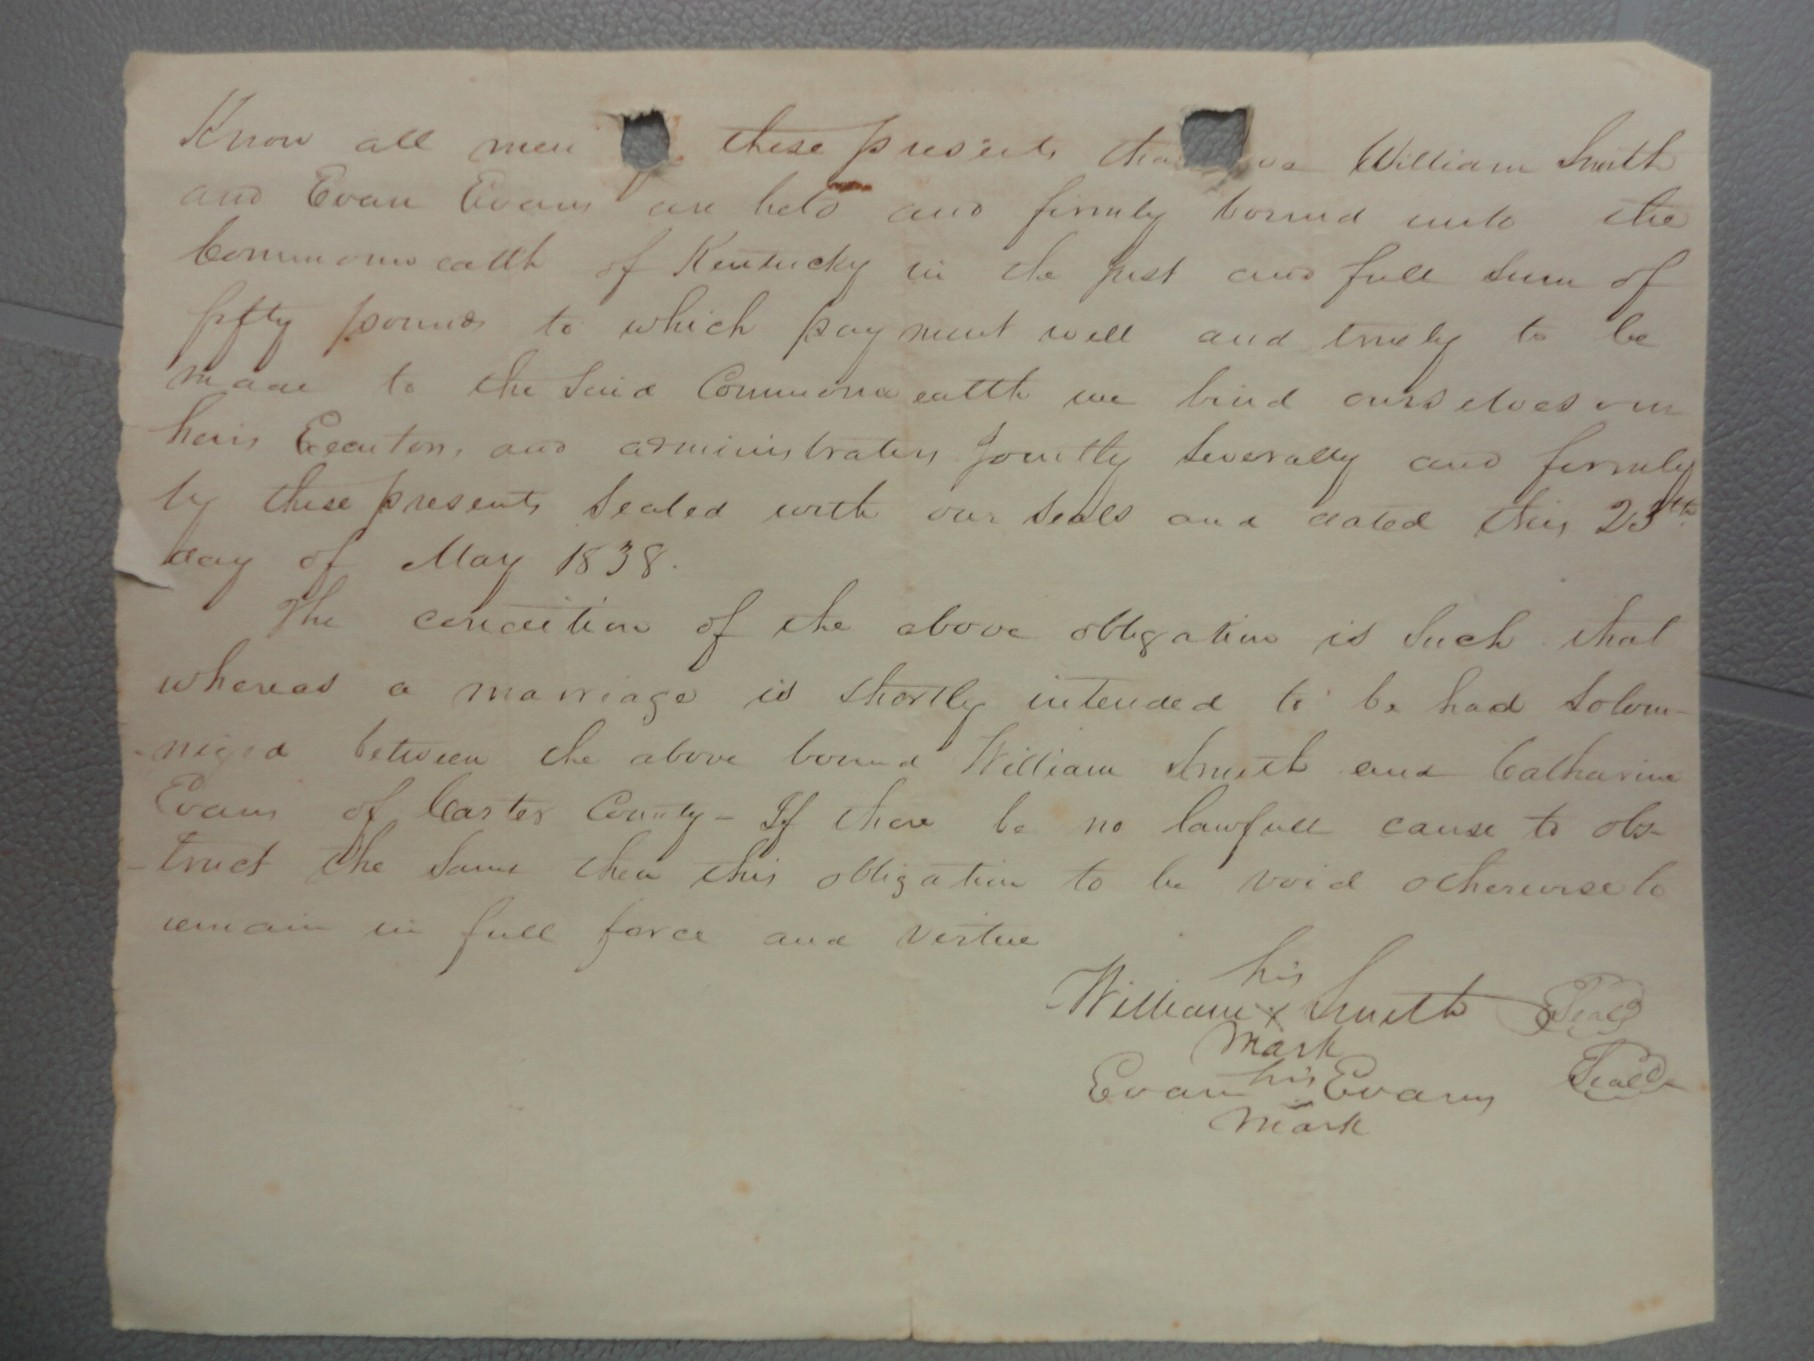 Know all men these presents that we William Smith
and Evan Evans are held and firmly bound unto the
Commonwealth of Kentucky in the just and full sum of
fifty pounds to which payment well and truely to be
made to the said Commonwealth we bind ourselves our
heirs Executors and administrators Jointly Severally and firmly
by these presents Sealed with our seals and dated this 25th
day of May 1838.
The condition of the above obligation is such that
whereas a marriage is shortly intended to be had Solem-
-nized between the above bound William Smith and Catharine
Evans of Carter County - If there be no lawfull cause to obs-
-truct the same then this obligation to be void otherwise to
remain in full force and virtue
his
William x Smith Seal
mark
his
Evan Evans Seal
mark